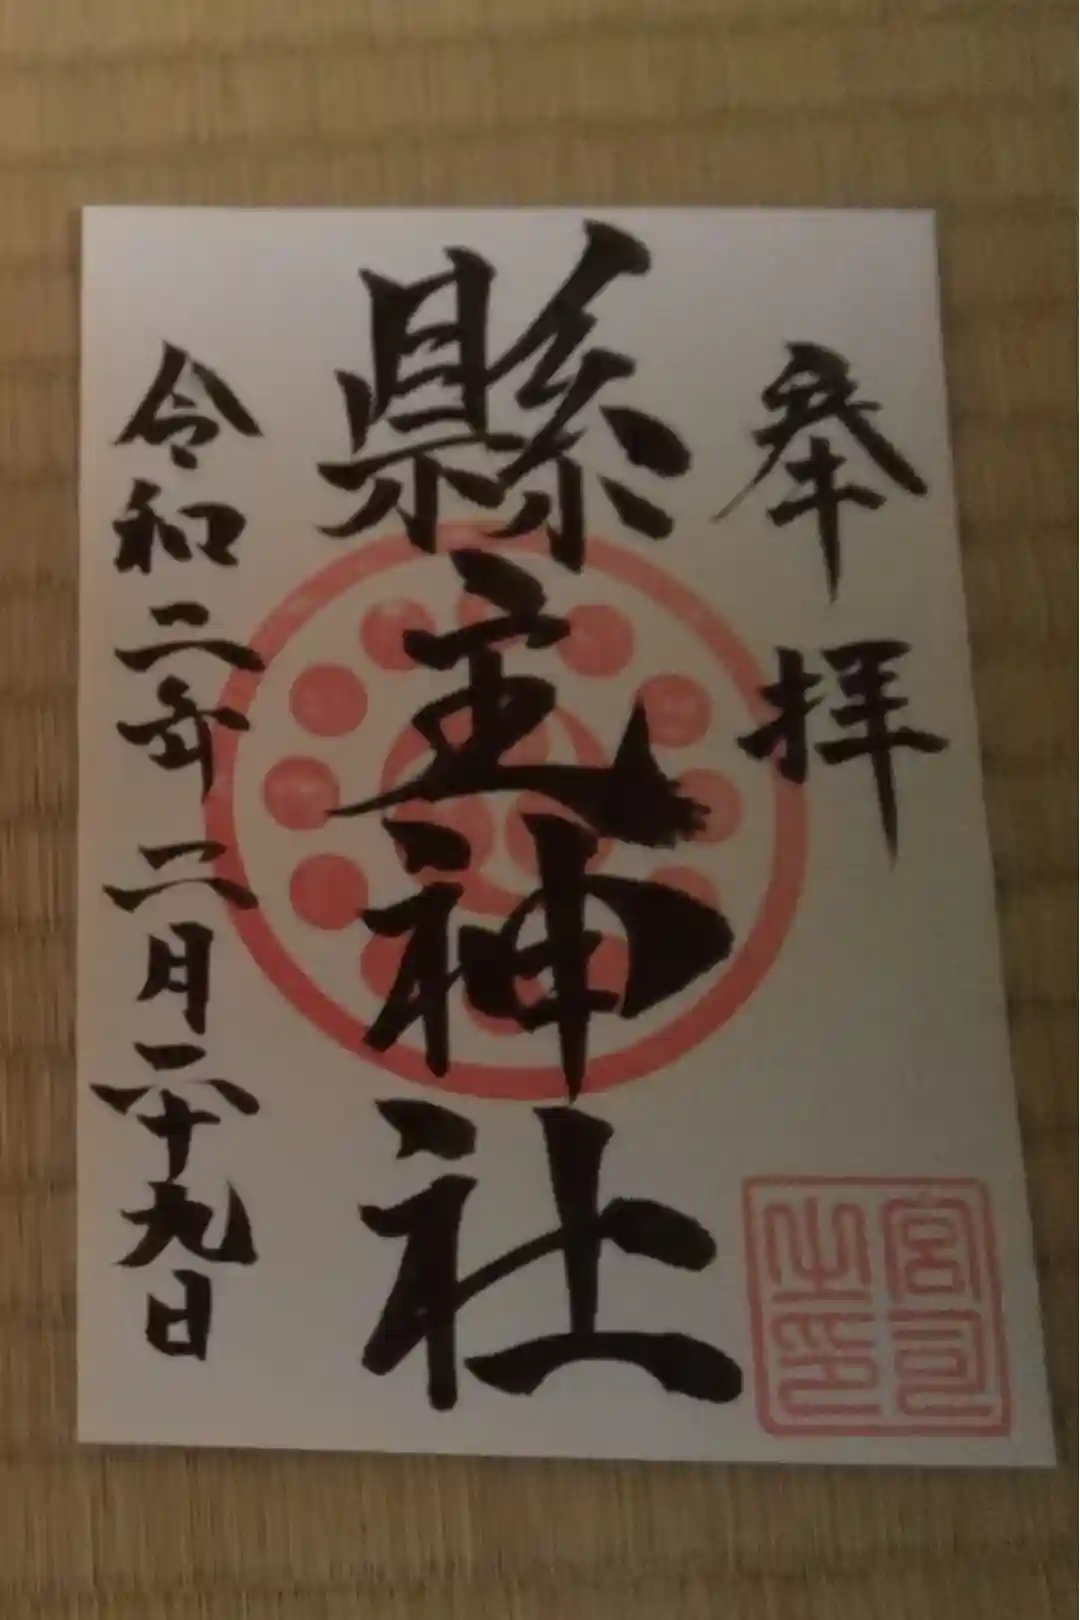 奉拝
縣主神社
令和二年二月二十九日
宮司
之印